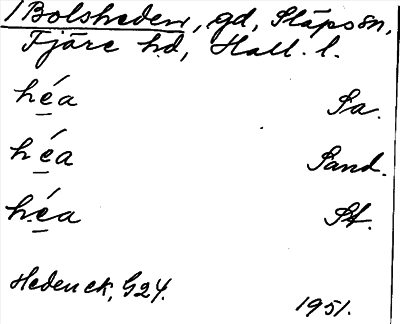 /Bolsheden, gd, Släps sn,
Fjäre hd, Hall. l.
héa Sa.
héa Sand.
héa St.
Hedenek, G24.
1951.